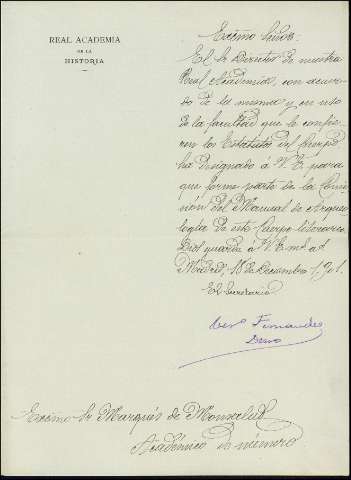 REAL ACADEMIA
DE LA
HISTORIA
Excmo Señor:
El Sr Director de nuestra
Real Academia, con acuer
do de la misma y en uso
de la facultad que le confie
ren los Estatutos del Cuerpo
ha designado á V.E. para
que forme parte de la Comi
sión del Manual de Arqueo
logía de este Cuerpo literario
Dios guarde á V.E. m. a.
Madrid, 18 de Diciembre 1901.
El Secretario
Fernandez
Duro
Excmo Sr Marqués de Monsalud,
Académico de número.